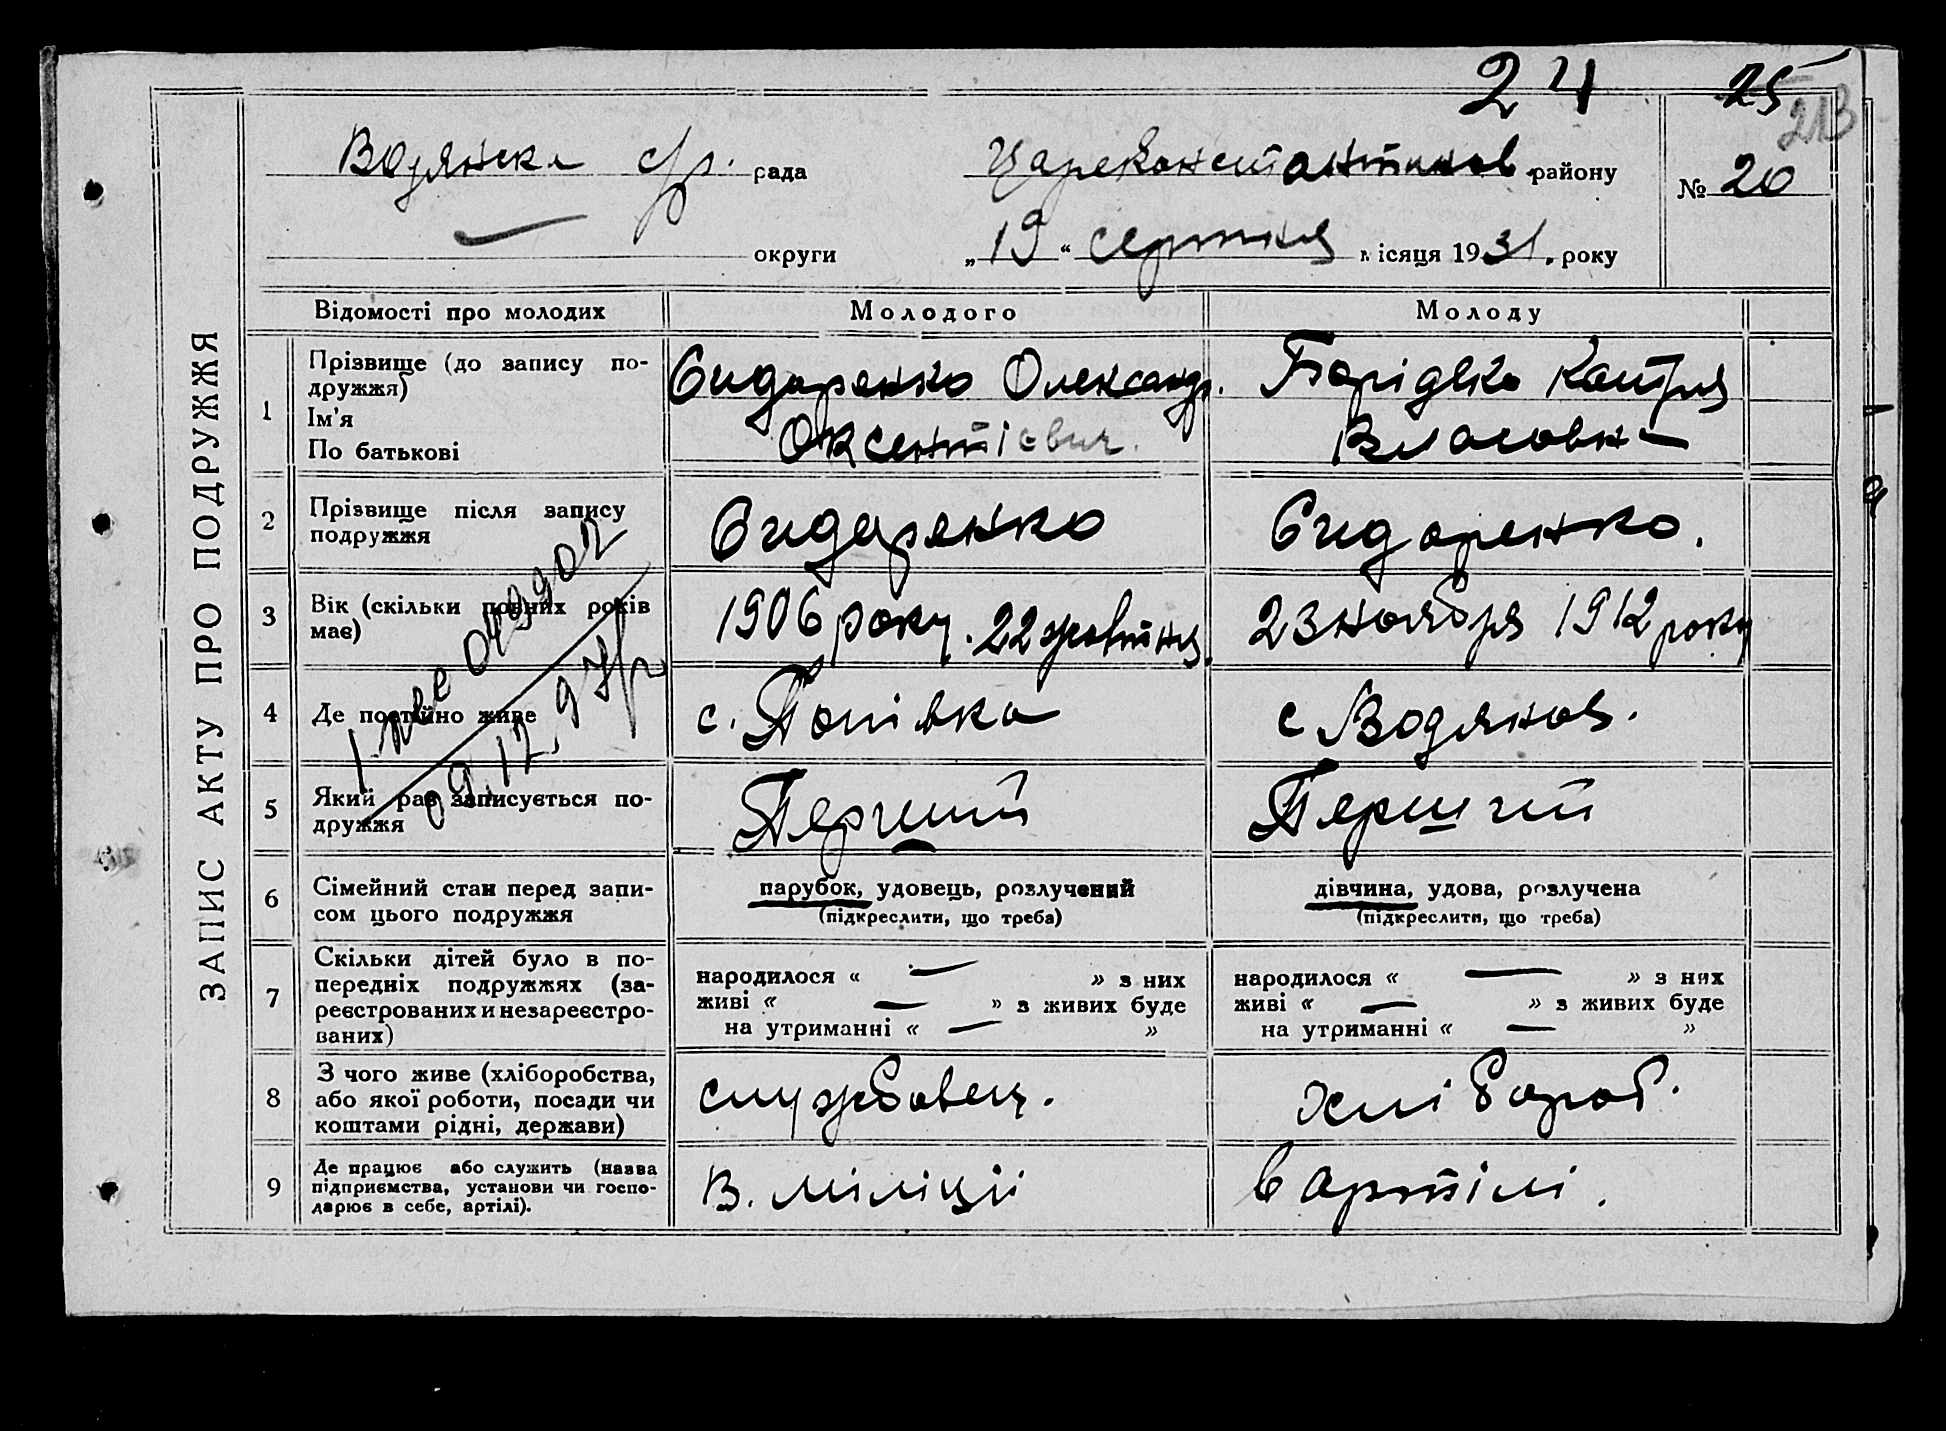 24 25
213
Водянска с/р. рада Цареконстантинов. району № 20
округи „19“ серпня місяця 1931. року
ЗАПИС АКТУ ПРО ПОДРУЖЖЯ
Відомості про молодих Молодого Молоду
1 Прізвище (до запису по-
дружжя) Сидаренко Олександр. Борідько Катря
Ім'я
По батькові Оксентієвич. Власовн
2 Прізвище після запису
подружжя Сидаренко Сидаренко.
3 Вік (скільки повних років
має) 1906 року. 22 жовтня. 23 ноября 1912 року
4 Де постійно живе с. Попівка с Водяная.
5 Який раз записується по-
дружжя Перший Перший
6 Сімейний стан перед запи-
сом цього подружжя парубок, удовець, розлучений
(підкреслити, що треба) дівчина, удова, розлучена
(підкреслити, що треба)
7 Скільки дітей було в по-
передніх подружжях (за-
реєстрованих и незареєстро-
ваних) народилося « — » з них
живі « — » з живих буде
на утриманні « — »
народилося « — » з них
живі « — » з живих буде
на утриманні « — »
8 З чого живе (хліборобства,
або якої роботи, посади чи
коштами рідні, держави) службовец. хлібороб.
9 Де працює або служить (назва
підприємства, установи чи госпо-
дарює в себе, артілі). В. міліціі в артілі.
09.12.97г